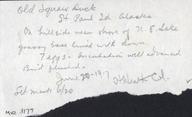 Old Squaw Duck
St Paul Isd Alaska
On hillside near shore of N. E Lake
grassy base lined with down
7 eggs - Incubation well advanced
Bird flushed.
June 20-1917
Set mark 6/20